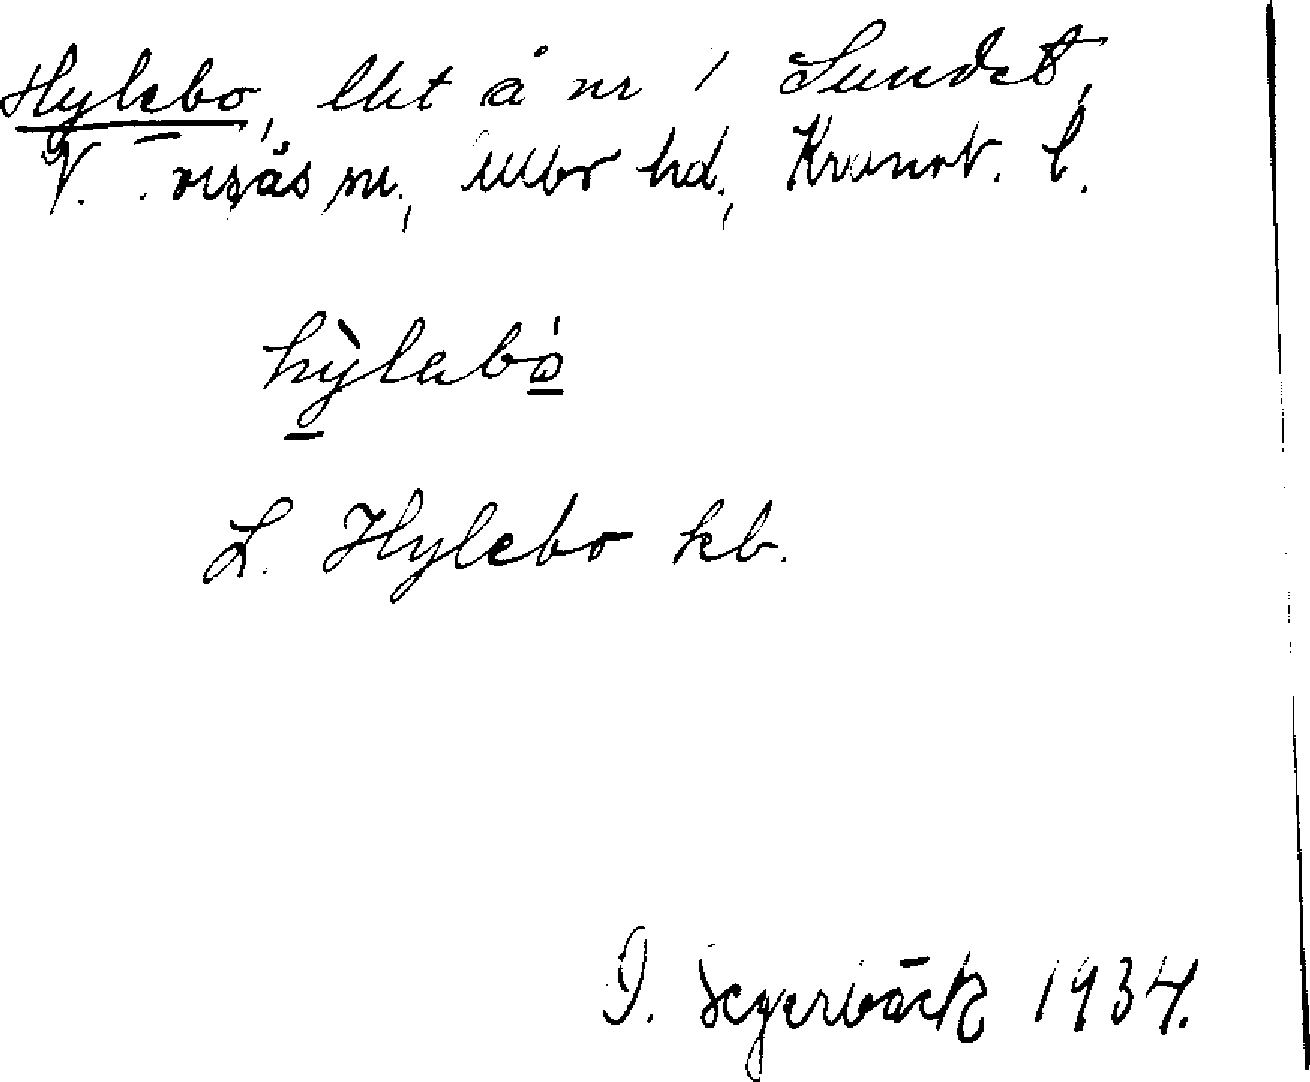 Hylebo, lht å nr 1 Sundet,
V. Torsås sn., Allbo hd., Kronob. l.
hỳlabó
L. Hylebo kb.
I. Segerbäck 1934.